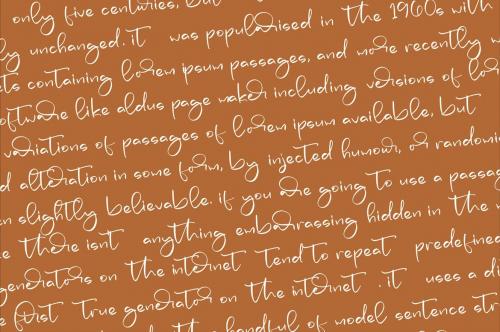 only five centuries, but
unchanged. it was popularised in the 1960s with
containing lorem ipsum passages, and more recently
software like aldus page maker including versions of
variations of passages of lorem ipsum available, but
alteration in some form, by injected humour, or
slightly believable. if you are going to use a
there isn't anything embarrassing hidden in the
generators on the internet tend to repeat
first true generator on the internet. it uses a
the handful of model sentence